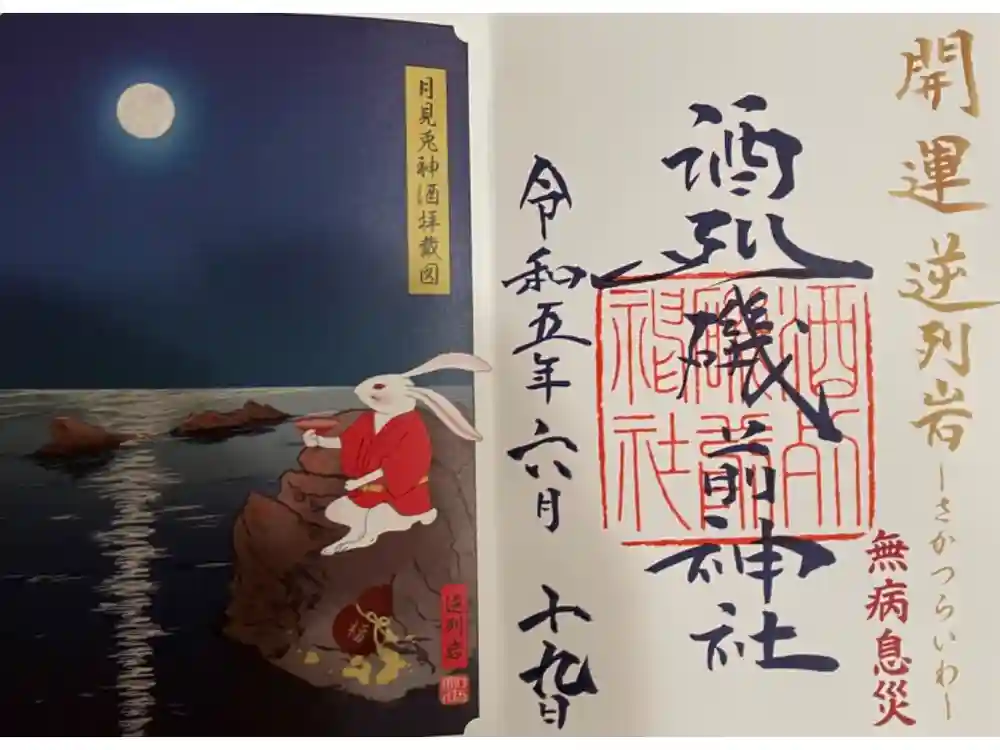 開運逆列岩
ーさかつらいわー
無病息災
酒列磯前神社
酒列
磯前
神社
令和五年六月十九日
月見兎神酒拝戴図
逆列岩
福